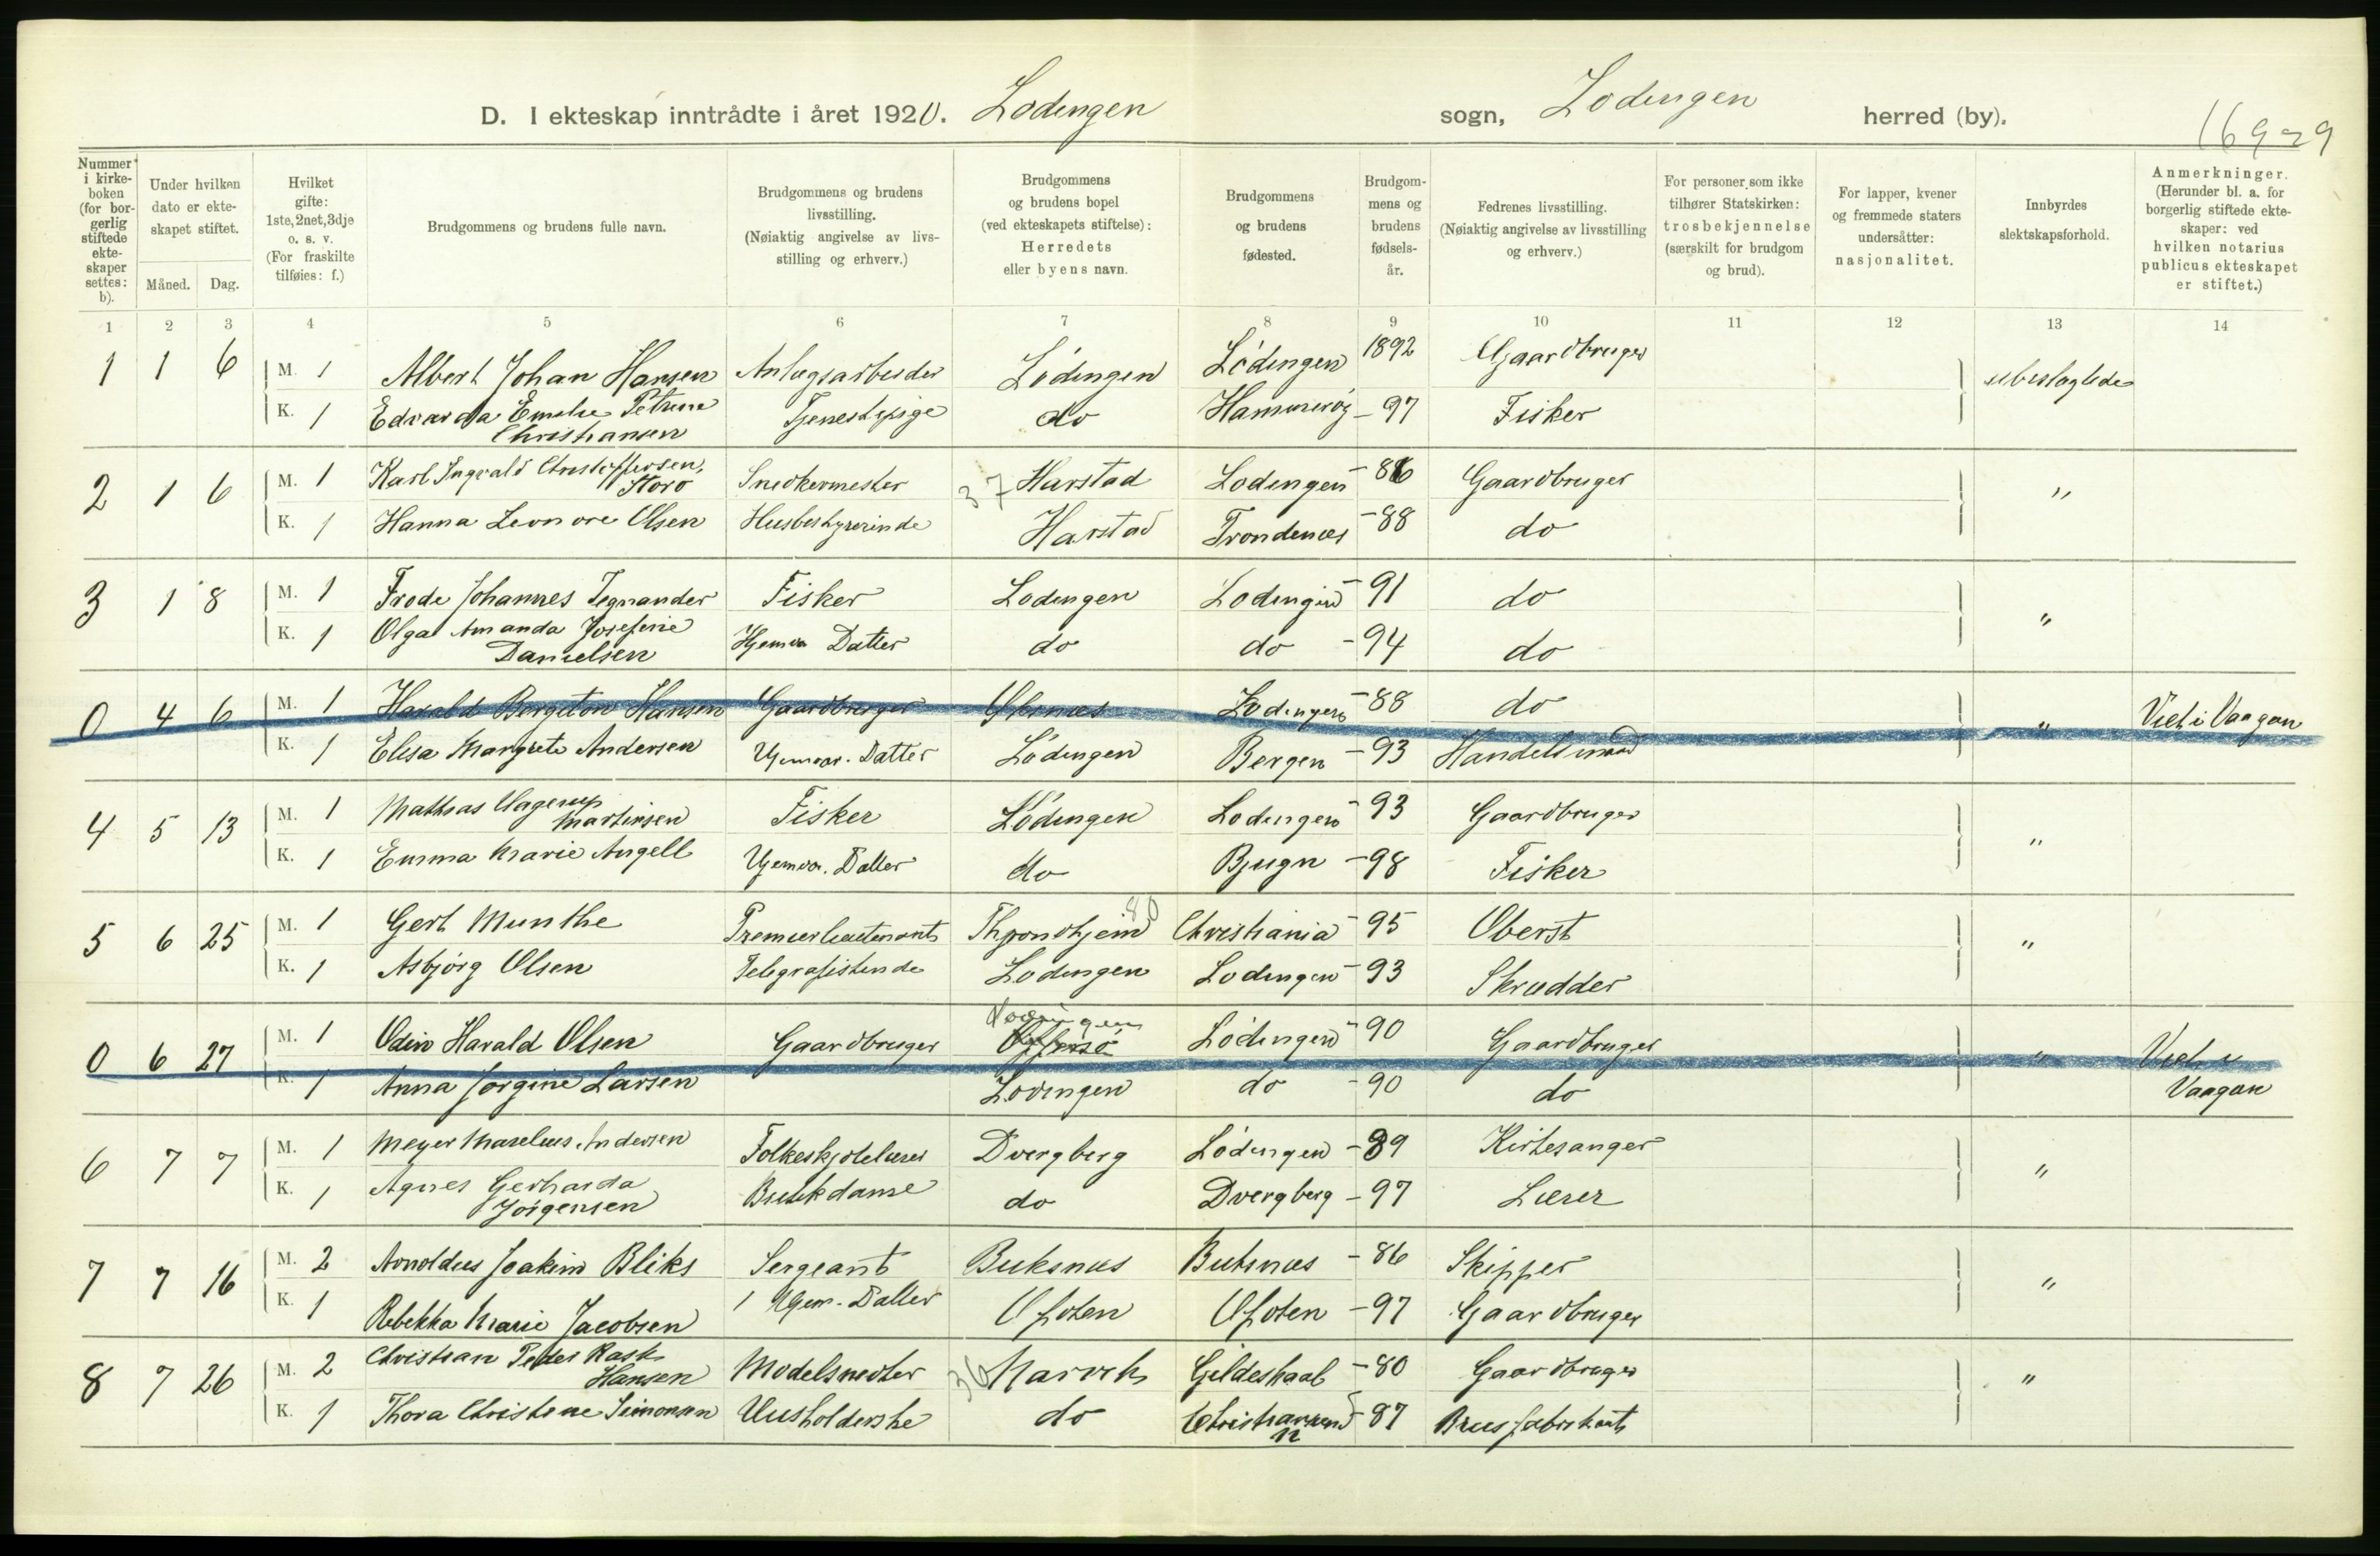 D. I ekteskap inntrådte i året 1920. Lodingen sogn, Lodingen herred (by).
16929
Nummer i kirkeboken (for borgerlig stiftede ekteskaper settes: b).
Under hvilken dato er ekteskapet stiftet.
Måned. Dag.
Hvilket gifte: 1ste, 2net, 3dje o. s. v. (For fraskilte tilføies: f.)
Brudgommens og brudens fulle navn.
Brudgommens og brudens livsstilling. (Nøiaktig angivelse av livsstilling og erhverv.)
Brudgommens og brudens bopel (ved ekteskapets stiftelse): Herredets eller byens navn.
Brudgommens og brudens fødested.
Brudgommens og brudens fødselsår.
Fedrenes livsstilling. (Nøiaktig angivelse av livsstilling og erhverv.)
For personer som ikke tilhører Statskirken: trosbekjennelse (særskilt for brudgom og brud).
For lapper, kvener og fremmede staters undersåtter: nasjonalitet.
Innbyrdes slektskapsforhold.
Anmerkninger. (Herunder bl. a. for borgerlig stiftede ekteskaper: ved hvilken notarius publicus ekteskapet er stiftet.)
1 2 3 4 5 6 7 8 9 10 11 12 13 14
1 1 6 M. 1 Albert Johan Hansen Anlægsarbeider Lódingen Lódingen 1892 Gaardbruger ubeslægtede
K. 1 Edvarda Emelie Petrine Christiansen Tjenestepige do Hammerøy -97 Fisker
2 1 6 M. 1 Karl Ingvald Christoffersen, Storo Snedkermester 37 Harstad Lodingen -86 Gaardbruger "
K. 1 Hanna Leonore Olsen Husbestyrerinde Harstad Trondenæs -88 do
3 1 8 M. 1 Frode Johannes Tegnander Fisker Lodingen Lodingen -91 do "
K. 1 Olga Amanda Josefine Danielsen Hjemv Datter do do -94 do
0 4 6 M. 1 Harald Bergiton Hansen Gaardbruger Lodingen -88 do " Viet i Vaagan
K. 1 Elisa Margrete Andersen Hjemvær. Datter Lódingen Bergen -93 Handelsmand
4 5 13 M. 1 Mathias Hagerup Martinsen Fisker Lódingen Lodingen -93 Gaardbruger "
K. 1 Emma Marie Angell Hjemvær. Datter do Bjugn -98 Fisker
5 6 25 M. 1 Gert Munthe Premierleutenant Throndhjem 80 Christiania -95 Oberst "
K. 1 Asbjórg Olsen Telegrafistinde Lodingen Lodingen -93 Skrædder
0 6 27 M. 1 Odin Harald Olsen Gaardbruger Lodingen Offersø Lódingen -90 Gaardbruger " Viet i Vaagan
K. 1 Anna Jorgine Larsen Lodingen do -90 do
6 7 7 M. 1 Meyer Maselius Andersen Folkeskolelærer Dvergberg Lódingen -89 Kirkesanger "
K. 1 Agnes Gerharda Jórgensen Butikdame do Dvergberg -97 Lærer
7 7 16 M. 2 Arnoldus Joakim Bliks Sergeant Buksnæs Buksnæs -86 Skipper "
K. 1 Rebekka Marie Jacobsen 1 Hjem. Datter Ofoten Ofoten -97 Gaardbruger
8 7 26 M. 2 Christian Peder Rask Hansen Modelsnedker 36 Narvik Gildeskaal -80 Gaardbruger "
K. 1 Thora Christine Simonsen Husholderske do Christiansund N -87 Brusfabrikant